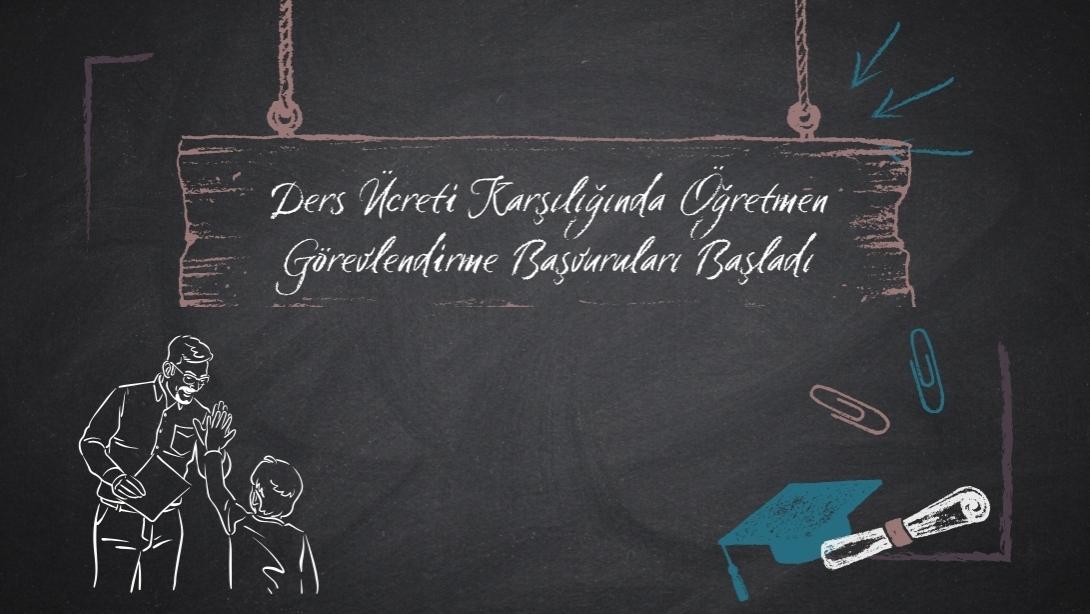 Ders Ücreti Karşılığında Öğretmen
Görevlendirme Başvuruları Başladı